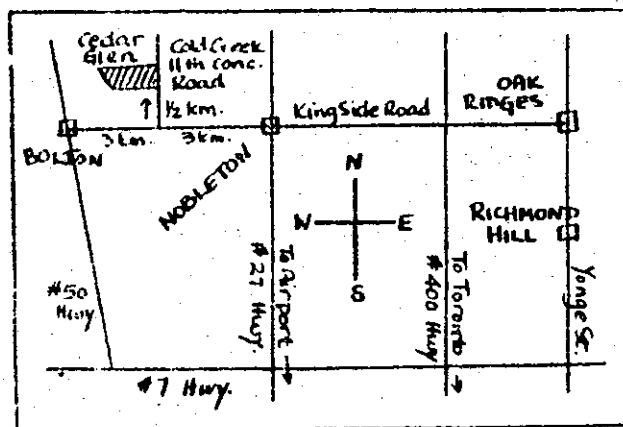 Cedar
Glen
Cold Creek
11th conc.
Road
1/2 km.
King Side Road
OAK
RIDGES
3 km.
3 km.
BOLTON
NOBLETON
N
W
E
S
RICHMOND
HILL
#50
Hwy
#27 Hwy.
To Airport
#400 Hwy
To Toronto
Yonge St.
#7 Hwy.